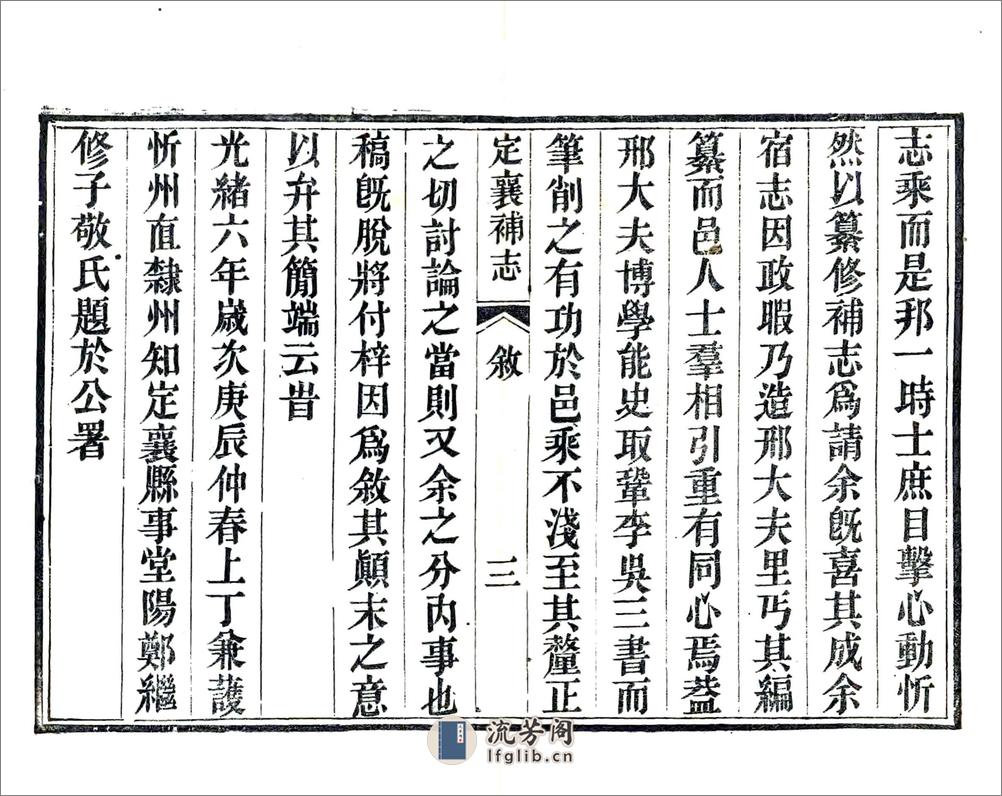 志乘而是邦一時士庶目擊心動忻
然以纂修補志爲請余既喜其成余
宿志因政暇乃造邢大夫里丐其編
纂而邑人士羣相引重有同心焉葢
邢大夫博學能史取鞏李吳三書而
筆削之有功於邑乘不淺至其釐正
定襄補志 敘 三
之切討論之當則又余之分內事也
稿既脫將付梓因爲敘其顛末之意
以弁其簡端云旹
光緒六年歲次庚辰仲春上丁兼護
忻州直隸州知定襄縣事堂陽鄭繼
修子敬氏題於公署
流芳阁
lfglib.cn